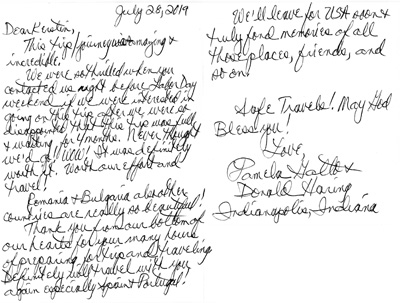 July 28, 2019
Dear Kerstin,
This trip/journey was amazing &
incredible!
We were so thrilled when you
contacted us night before Labor Day
weekend if we were interested in
going on this trip after we were so
disappointed that this trip was full
& waiting for 4 months. Never thought
we'd go! WOW! It was definitely
worth it. Worth our effort and
travel!
Romania & Bulgaria also other
countries are really so beautiful!
Thank you from our bottom of
our hearts for your many hours
of preparing for us and traveling
Definitely will travel with you
again especially Spain & Portugal!
We'll leave for USA soon &
truly fond memories of all
those places, friends, and
so on.
Safe Travels! May God
Bless you!
Love,
Pamela &
Donald Haring
Indianapolis, Indiana